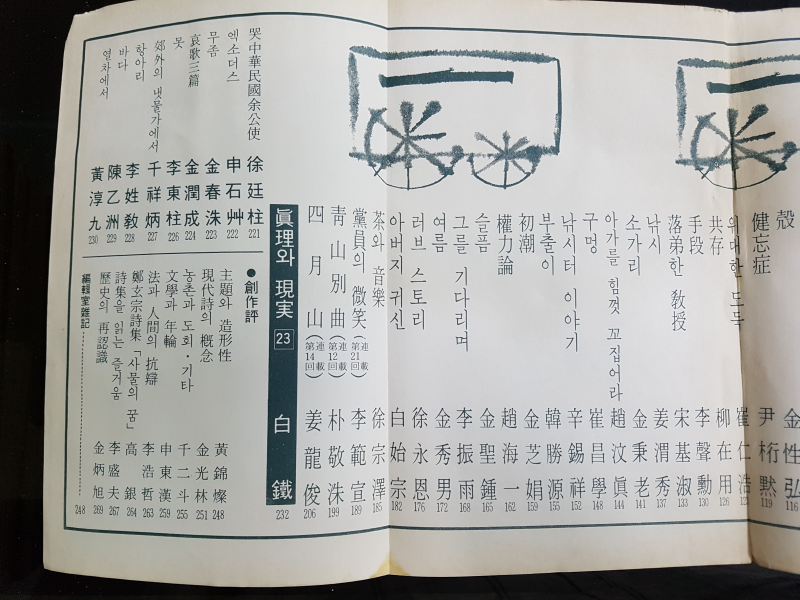 殼 金性弘 116
健忘症 尹桁默 119
위대한 도둑 崔仁浩
共存 柳在用 126
手段 李聲勳 130
落弟한 敎授 宋基淑 133
낚시 姜渭秀 137
소가리 金秉老 141
아가를 힘껏 꼬집어라 趙汶眞 144
구멍 崔昌學 148
낚시터 이야기 辛錫祥 152
부출이 韓勝源 155
初潮 金芝娟 159
權力論 趙海一 162
슬픔 金聖鍾 165
그를 기다리며 李振雨 168
여름 金秀男 172
러브 스토리 徐永恩 176
아버지 귀신 白始宗 182
茶와 音樂 徐宗澤 185
黨員의 微笑(連載第21回) 李範宣 189
靑山別曲(連載第12回) 朴敬洙 199
四月山(連載第14回) 姜龍俊 206
眞理와 現実 23 白鐵 232
哭中華民國余公使 徐廷柱 221
엑소더스 申石艸 222
무좀 金春洙 223
哀歌三篇 金潤成 224
못 李東柱 226
郊外의 냇물가에서 千祥炳 227
항아리 李姓敎 228
바다 陳乙洲 229
열차에서 黃淳九 230
●創作評
主題와 造形性 黃錦燦 248
現代詩의 槪念 金光林 251
농촌과 도회·기타 千二斗 255
文學과 年輪 申東漢 259
法과 人間의 抗辯 李浩哲 263
鄭玄宗詩集「사물의 꿈」 高銀 264
詩集을 읽는 즐거움 李盛夫 267
歷史의 再認識 金炳旭 269
編輯室雜記 248